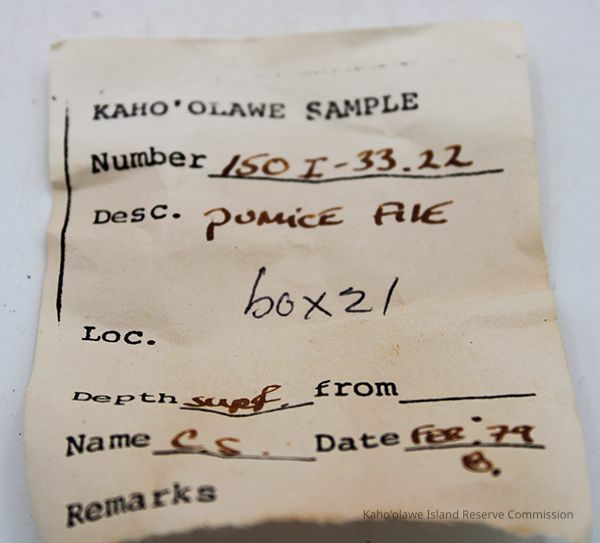 KAHO'OLAWE SAMPLE
Number 150 I-33.22
Desc. PUMICE FILE
box 21
Loc.
Depth surf. from
Name C.S. Date FEB. '79
B.
Remarks
Kaho'olawe Island Reserve Commission